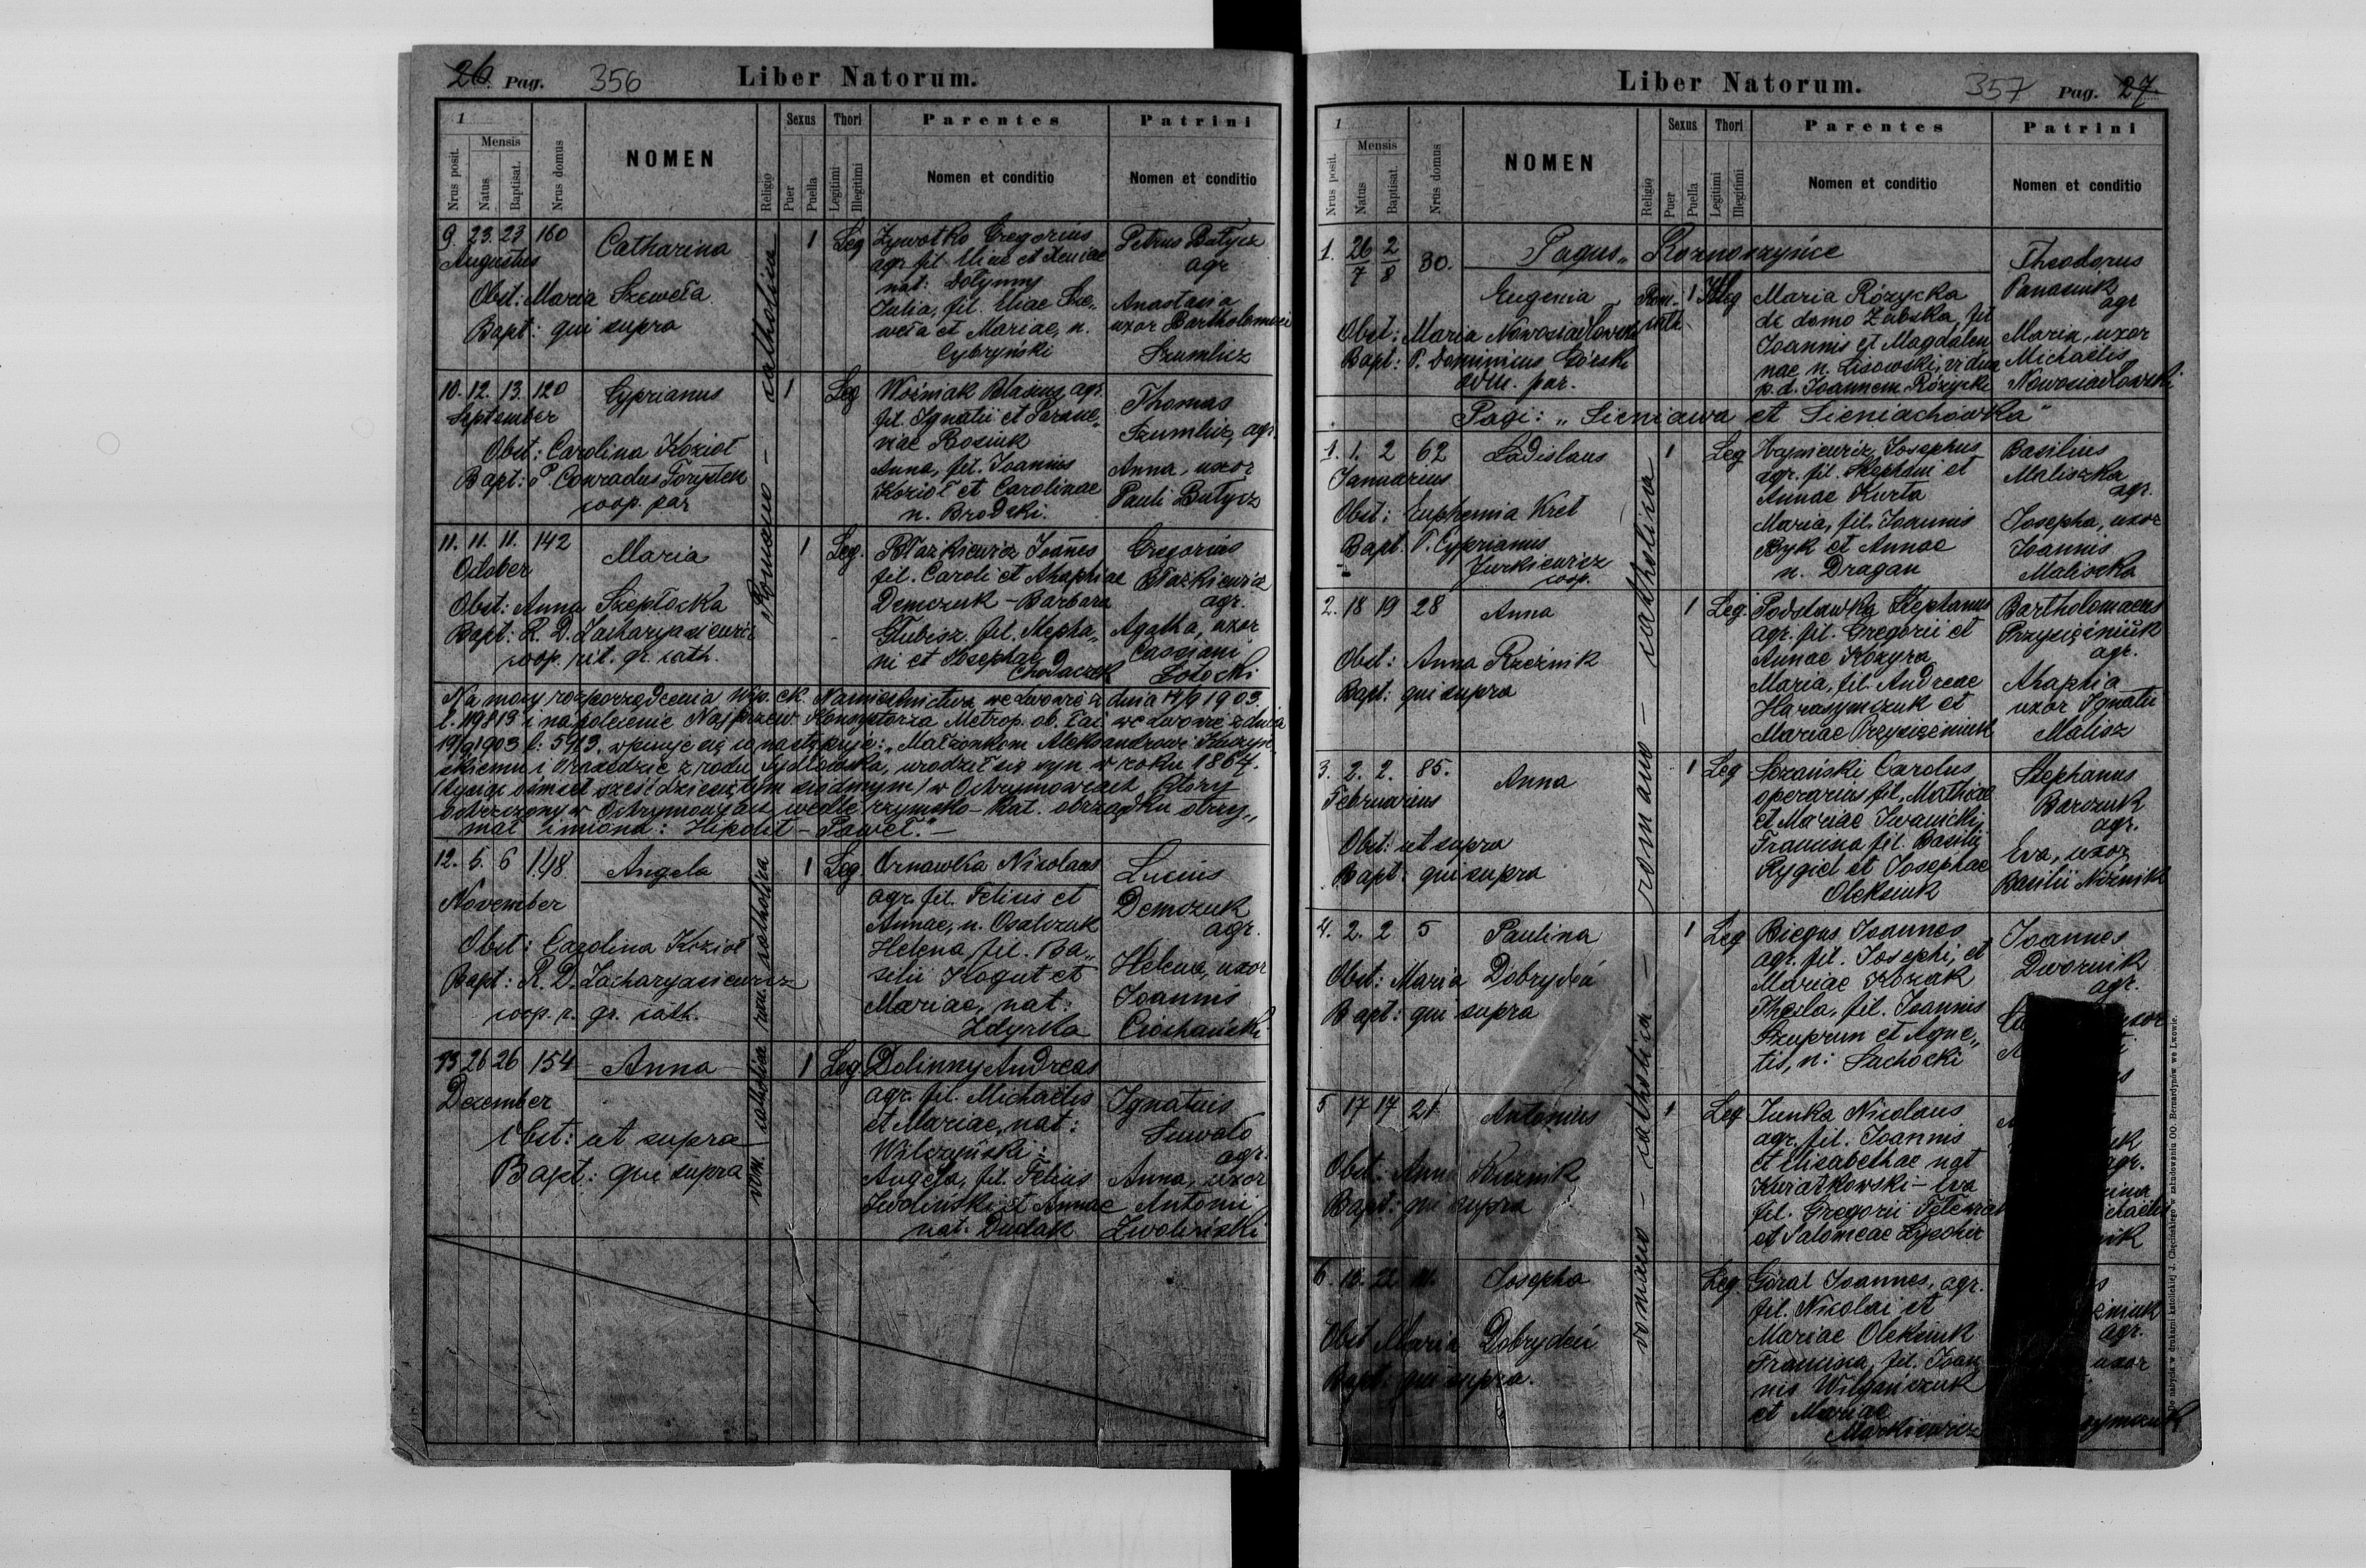 26 Pag. 356 Liber Natorum.
1
Nrus posit.
Mensis
Natus
Baptisat.
Nrus domus
NOMEN
Religio
Sexus
Puer
Puella
Thori
Legitimi
Illegitimi
Parentes
Nomen et conditio
Patrini
Nomen et conditio
9. 23. 23 160 Catharina 1 Leg
Augustus
Obst: Maria Szeweła
Bapt: qui supra
Żywotko Gregorius
agr. fil. Eliae et Xeniae
nat: Dołynny
Julia, fil. Eliae Sze„
weła et Mariae, n.
Cybryński
Petrus Batycz
agr
Anastasia
uxor Bartholomaei
Szumlicz
romano - catholica
10. 12. 13. 120 Cyprianus 1 Leg
September
Obst: Carolina Kozioł
Bapt: P. Conradus
coop. par
Woźniak Blasius, agr.
fil. Ignatii et Parane„
nae Bosiuk
Anna, fil. Joannis
Kozioł et Carolinae
n. Brodzki.
Thomas
Szumlicz, agr.
Anna, uxor
Pauli Batycz
11. 11. 11. 142 Maria 1 Leg.
October
Obst: Anna Szepłocka
Bapt: R. D. Zacharyasiewicz
coop. rit. gr. cath.
Błażkiewicz Joannes
fil. Caroli et Ahaphiae
Demczuk - Barbara
Głubisz, fil. Stepha„
ni et Josephae
Chodaczek
Gregorius
Błażkiewicz
agr.
Agatha, uxor
Cassiani
Na mocy rozporządzenia Wys. ck. Namiestnictwa we Lwowie z dnia 14/9 1903.
l. 119813 i na polecenie Najprzew. Konsystorza Metrop. ob. łac. we Lwowie z dnia
19/9 1903 l: 5913. wpisuje się co następuje: „Małżonkom Aleksandrowi
skiemu i z rodu urodził się syn w roku 1867.
(tysiąc ośmset sześćdziesiątym siódmym) w Ostrymowcach, który
ochrzczony w wedle rzymsko-kat. obrządku otrzy„
mał imiona: Hipolit - Paweł." -
12. 6. 6 148 Angela 1 Leg
November
Obst: Carolina Kozioł
Bapt: R. D. Zacharyasiewicz
coop. r. gr. cath.
Ornawka Nicolaus
agr. fil. Felicis et
Annae, n. Osalczuk
Helena, fil. Ba„
silii Kogut et
Mariae, nat:
Zdyrka
Lucius
Demczuk
agr.
Helena, uxor
Joannis
rom. catholica rom. catholica
13 26 26 154 Anna 1 Leg
Dezember
Obst: ut supra
Bapt: qui supra
Dolinny Andreas
agr. fil. Michaëlis
et Mariae, nat:
Wilczyński;
Angela, fil. Felicis
Zwoliński et Annae
nat. Dudak
Ignatius
Suwało
agr.
Anna, uxor
Antonii
Zwoliński
Liber Natorum. 357 Pag. 27
1
Nrus posit.
Mensis
Natus
Baptisat.
Nrus domus
NOMEN
Religio
Sexus
Puer
Puella
Thori
Legitimi
Illegitimi
Parentes
Nomen et conditio
Patrini
Nomen et conditio
Pagus „
1. 26/7 2/8 80. Eugenia Rom. cath. 1 Illeg
Obst: Maria Nowosiadłowska
Bapt: P. Dominicus Górski
adm. par.
Maria Rózycka
de domo Zabska, fil
Joannis et Magdale„
nae n. Lisowski, vidua
p. d. Joannem Rózycki
Theodorus
Panasiuk
agr
Maria, uxor
Michaëlis
Nowosiadłowski
Pagi: „Sieniawa et Sieniachówka"
1. 1. 2 62 Ladislaus 1 Leg
Januarius
Obst: Euphemia Kret
Bapt. P. Cyprianus
Jurkiewicz
coop.
Hryniewicz Josephus
agr. fil. Stephani et
Annae Kurta
Maria, fil. Joannis
Byk et Annae
n. Dragan
Basilius
Maliszka
agr.
Josepha, uxor
Joannis
Maliszka
romano - catholica
2. 18 19 28 Anna 1 Leg.
Obst: Anna Rzeźnik
Bapt: qui supra
Podsławka Stephanus
agr. fil. Gregorii et
Annae Kozyra
Maria, fil. Andreae
Harasymczuk et
Mariae Przysiężniuk
Bartholomaeus
Przysiężniuk
agr.
Ahaphia
uxor Ignatii
Malisz
3. 2. 2. 85. Anna 1 Leg
Februarius
Obst: ut supra
Bapt: qui supra
Szczański Carolus
operarius fil. Mathiae
et Mariae Iwanicki,
Francisca fil. Basilii
Rygiel et Josephae
Oleksiuk
Stephanus
Barczuk
agr.
Eva, uxor
Basilii Niżnik
4. 2. 2 5 Paulina 1 Leg
Obst: Maria Dobrydeń
Bapt: qui supra
Biegus Joannes
agr. fil. Josephi, et
Mariae Kozak
Thecla, fil. Joannis
Szuprun et Agne„
tis, n: Suchocki
Joannes
Dwornik
agr.
uxor
romano - catholica
5 17 17 21 Antonius 1 Leg
Obst: Anna
Bapt: qui supra
Junka Nicolaus
agr. fil. Joannis
et Elisabethae nat
Kwiatkowski - Eva
fil. Gregorii
et Salomeae
agr.
6. 15. 22 Josepha Leg.
Obst Maria Dobrydeń
Bapt: qui supra.
Góral Joannes, agr.
fil. Nicolai et
Mariae Oleksiuk
Francisca, fil. Joan„
nis Wilgańczuk
et Mariae
Markiewicz
agr.
uxor
Do nabycia w drukarni katolickiej J. Chęcińskiego w zabudowaniu OO. Bernardynów we Lwowie.